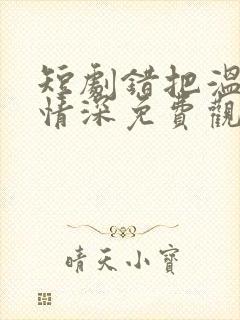 短劇錯把溫
情深免費觀
晴天小寶